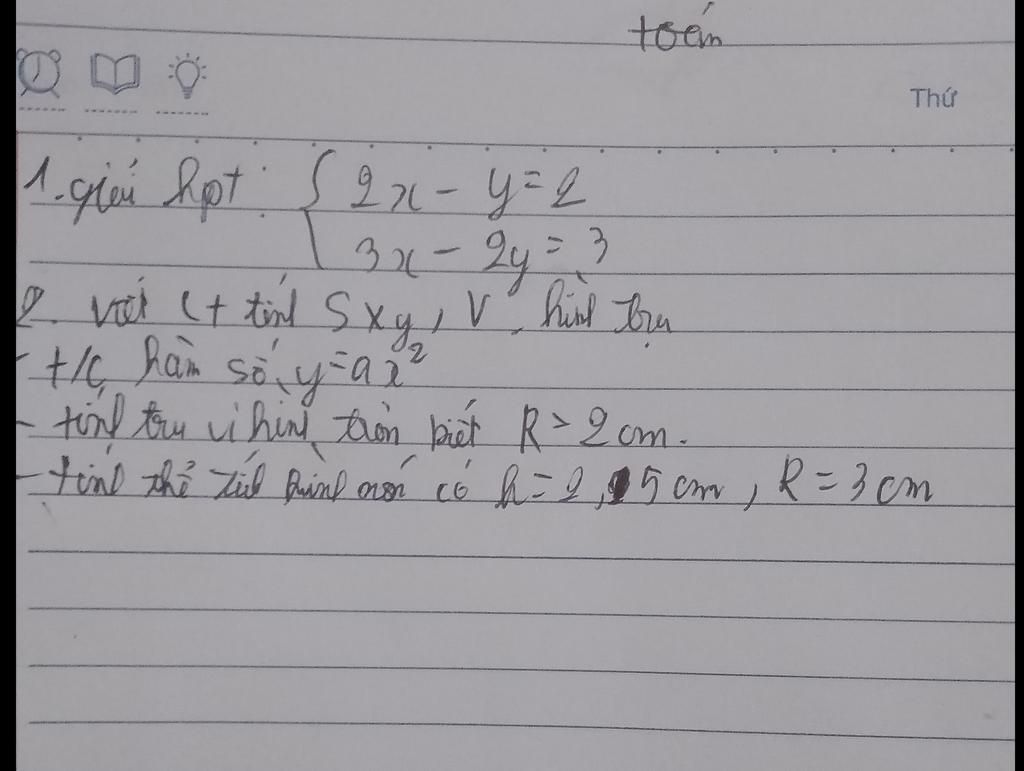 toán
Thứ
1. giải hpt: { 2x - y = 2
3x - 2y = 3
2. viết ct tính Sxq, V hình trụ
- t/c hàm số y = ax²
- tính chu vi hình tròn biết R = 2 cm.
- tính thể tích hình nón có h = 2,5 cm, R = 3 cm